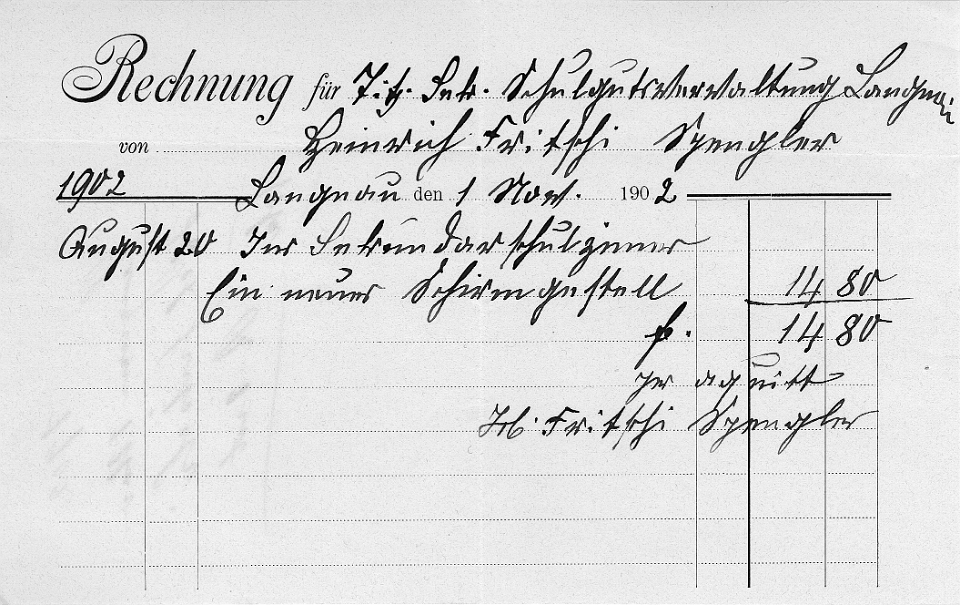 Rechnung für Tit. Sek. Schulgutsverwaltung Langnau
von Heinrich Fritschi Spengler
1902 Langnau den 1 Nov. 1902
August 20 Ins Sekundarschulzimer
Ein neues Schirmgestell 14 80
fr. 14 80
per aquitt
H. Fritschi Spengler